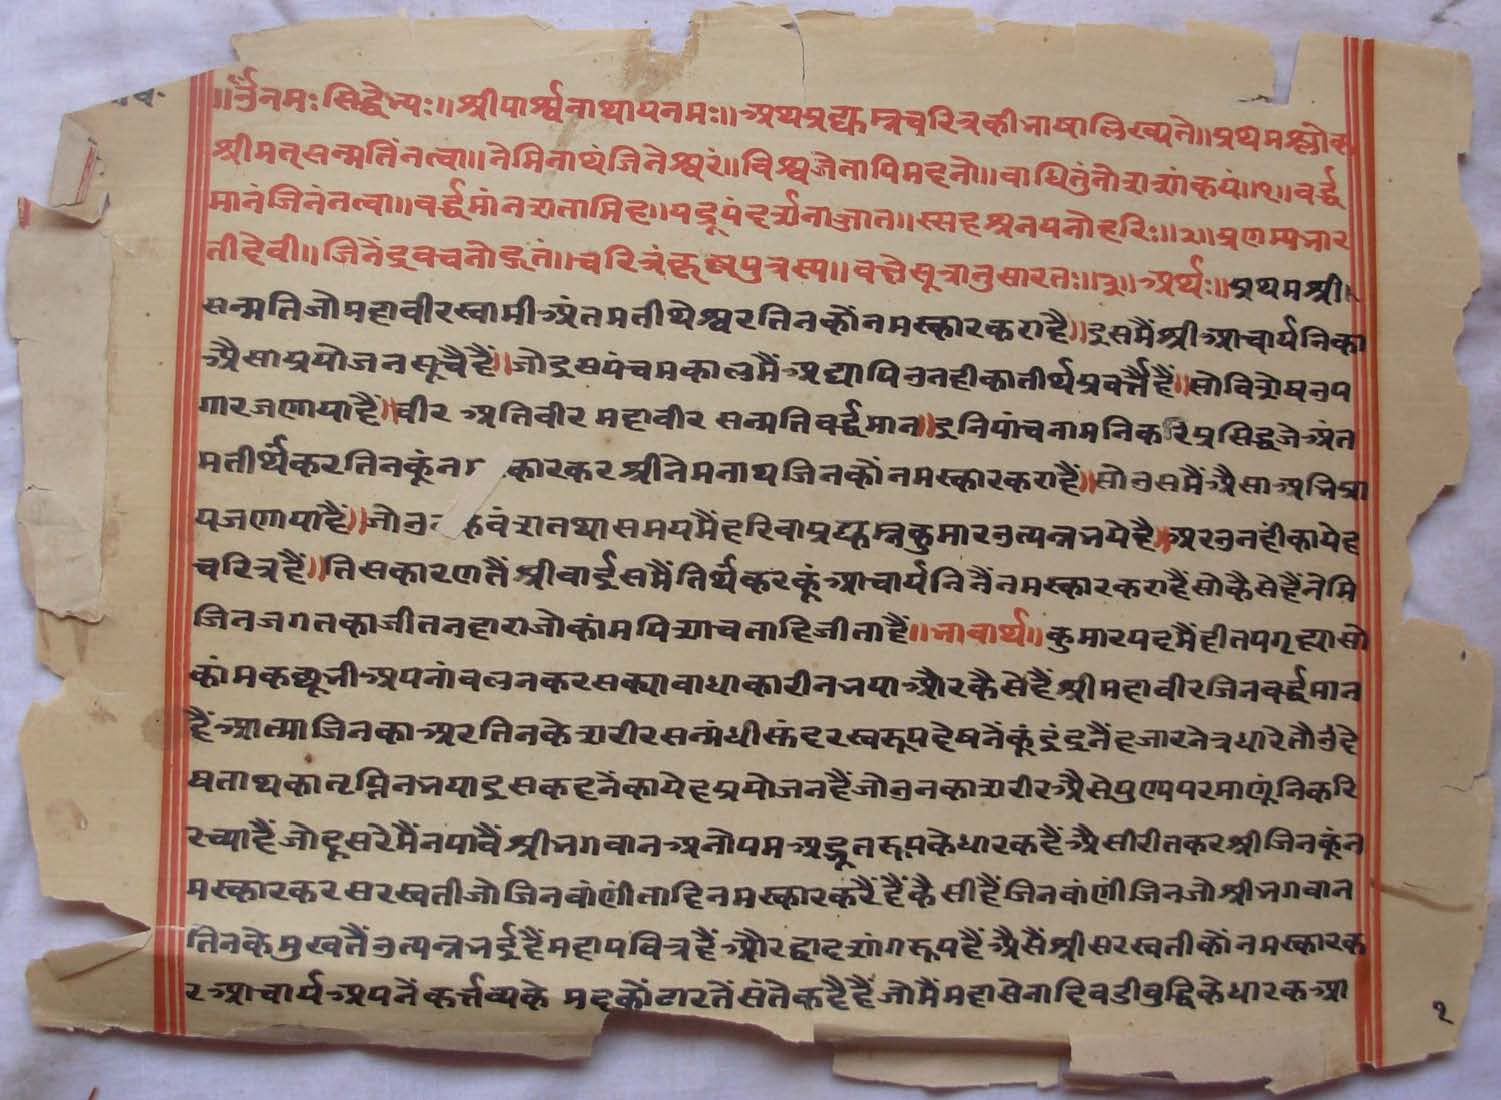 ॥ॐनमःसिद्धेभ्यः॥श्रीपार्श्वनाथायनमः॥अथप्रद्युम्नचरित्रकीभाषालिख्यते॥प्रथमश्लोक
श्रीमत्सन्मतिंनत्वा॥नेमिनाथंजिनेश्वरं॥विश्वजेतापिमदनो॥वाधितुंनोशशांकयं॥१॥वर्द्ध
मानंजिनंनत्वा॥वर्द्धमांनशतामिह॥यद्रूपंदर्शनाज्जात॥स्सहश्रनयनोहरिः॥२॥प्रणम्यभार
तीदेवी॥जिनेंद्रवक्चनोद्गतं॥चरित्रंकृष्णपुत्रस्य॥वक्ष्येसूत्रानुसारतः॥३॥अर्थः॥प्रथमश्री
सन्मतिजोमहावीरस्वामीअंतमतीथेश्वरतिनकौंनमस्कारकराहै॥इसमैंश्रीआचार्यनिका
अैसाप्रयोजनसूचैहैं॥जोइसपंचमकालमैंअद्यापिउनहीकातीर्थप्रवर्त्तैहैं॥सोविशेषउप
गारजणायाहैं॥वीर अतिवीर महावीर सन्मतिवर्द्धमान॥इनिपांचनामनिकरिप्रसिद्धजेअंत
मतीर्थंकरतिनकूंन कारकरश्रीनेमनाथजिनकौंनमस्कारकराहैं॥सोउसमैंअैसाअभिप्रा
यजणायाहैं॥जोउन वंशतथासमयमैंहरिवाप्रद्युम्नकुमारउत्पन्नभयेहै॥अरउनहींकायेह
चरित्रहैं॥तिसकारणतैंश्रीवाईसमैंतिर्थंकरकूंआचार्यनिनैंनमस्कारकराहैंसोकैसेहैंनेमि
जिनजगतकाजीतनहाराजोकांमपिशाचताहिजीताहैं॥भावार्थ॥कुमारपदमैंहीतपगृह्यासो
कांमकछूभीअपनांवलनकरसक्यावाधाकारीनभयाऔरकैसेहैंश्रीमहावीरजिनवर्द्धमान
हैंआत्माजिनकाअरतिनकेशरीरसन्मंधीसुंदरस्वरूपदेषनेंकूंइंद्रनैंहजारनेत्रधारेतौउंदे
षताथकातृप्तिनभयाइसकहनेंकायेहप्रयोजनहैंजोउनकाशरीरअैसेपुण्यपरमाणूंनिकरि
रच्याहैंजोदूसरेमैंनपावैंश्रीभगवानअनोपमअद्भूतरूपकेधारकहैंअैसीरीतकरश्रीजिनकूंन
मस्कारकरसरस्वतीजोजिनवांणींताहिनमस्कारकरैंहैंकैसीहैंजिनवांणींजिनजोश्रीभगवान
तिनकेमुखतैंउत्पन्नभईहैंमहापवित्रहैंऔरद्वादशांगरूपहैंअैसैंश्रीसरस्वतीकौंनमस्कारक
रआचार्यअपनेंकर्त्तव्यके मदकौंटारतेंसंतेकहैहैंजोमैंमहासेनादिवडीबुद्धिकेधारकआ
१